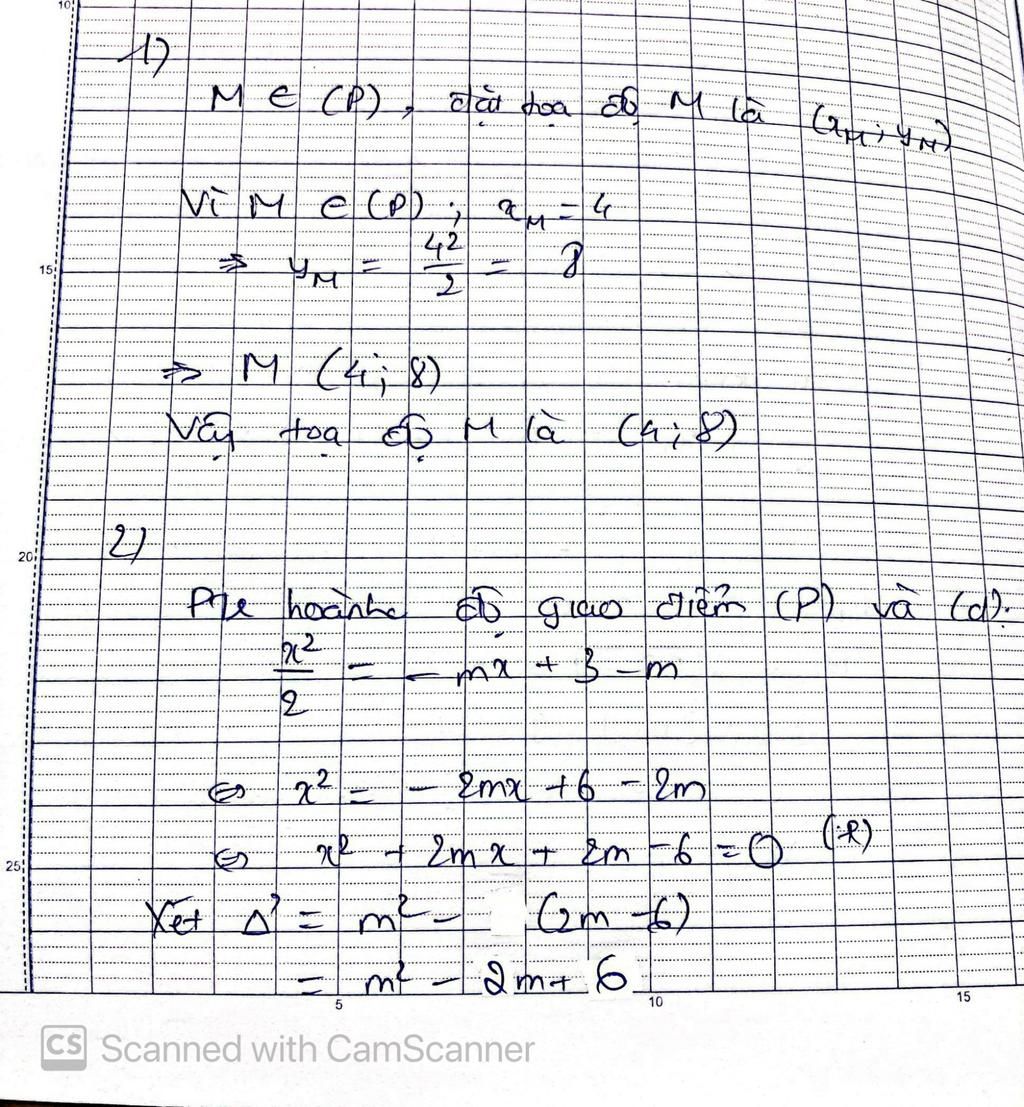 10
1)
M ∈ (P), đặt tọa độ M là (x_M; y_M)
Vì M ∈ (P); x_M = 4
15
⇒ y_M = 4²/2 = 8
⇒ M (4; 8)
Vậy tọa độ M là (4; 8)
20
2)
độ giao điểm (P) và (d):
x²/2 = - mx + 3 - m
⇔ x² = - 2mx + 6 - 2m
⇔ x² + 2mx + 2m - 6 = 0
25
Xét Δ' = m² - (2m - 6)
= m² - 2m + 6
5 10 15
CS Scanned with CamScanner